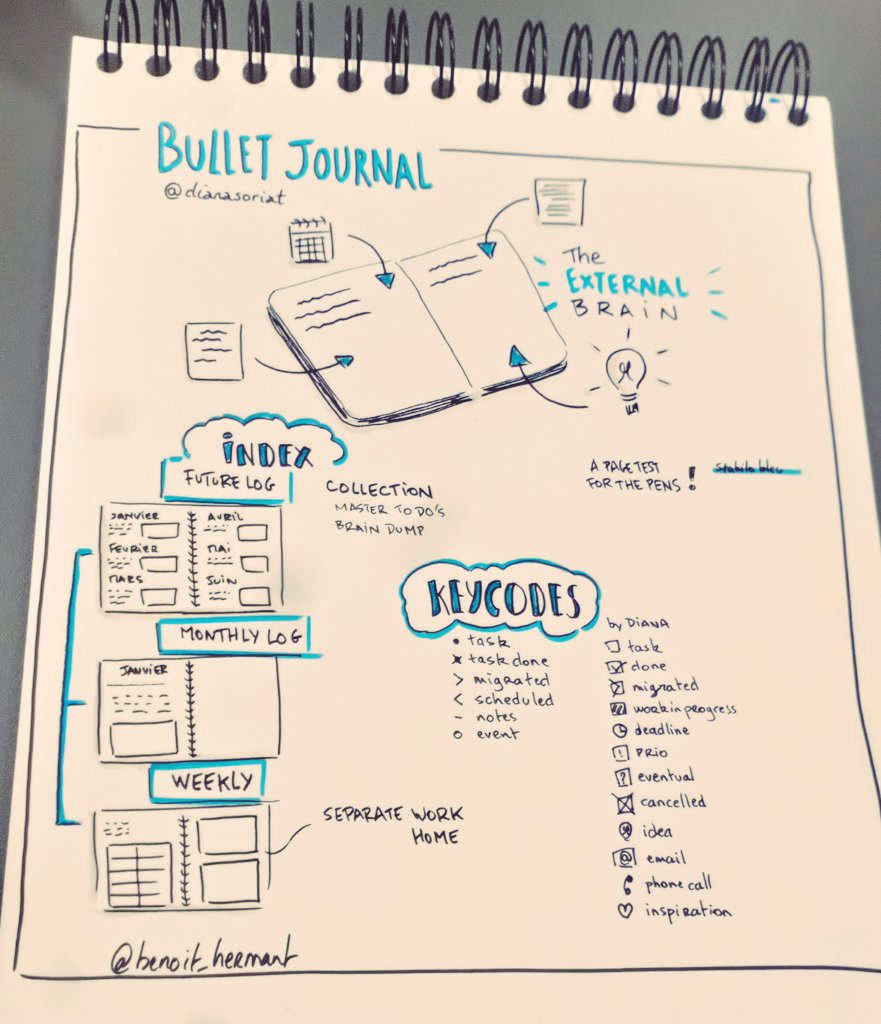 BULLET JOURNAL
@dianasoriat
The
EXTERNAL
BRAIN
INDEX
FUTURE LOG
COLLECTION
MASTER TO DO'S
BRAIN DUMP
A PAGE TEST
FOR THE PENS !
Stabilo bleu
JANVIER
AVRIL
FEVRIER
MAI
MARS
JUIN
MONTHLY LOG
JANVIER
WEEKLY
SEPARATE WORK
HOME
KEYCODES
• task
x task done
> migrated
< scheduled
- notes
o event
by DIANA
task
done
migrated
work in progress
deadline
! PRIO
? eventual
cancelled
idea
@ email
phone call
inspiration
@benoit_hermant